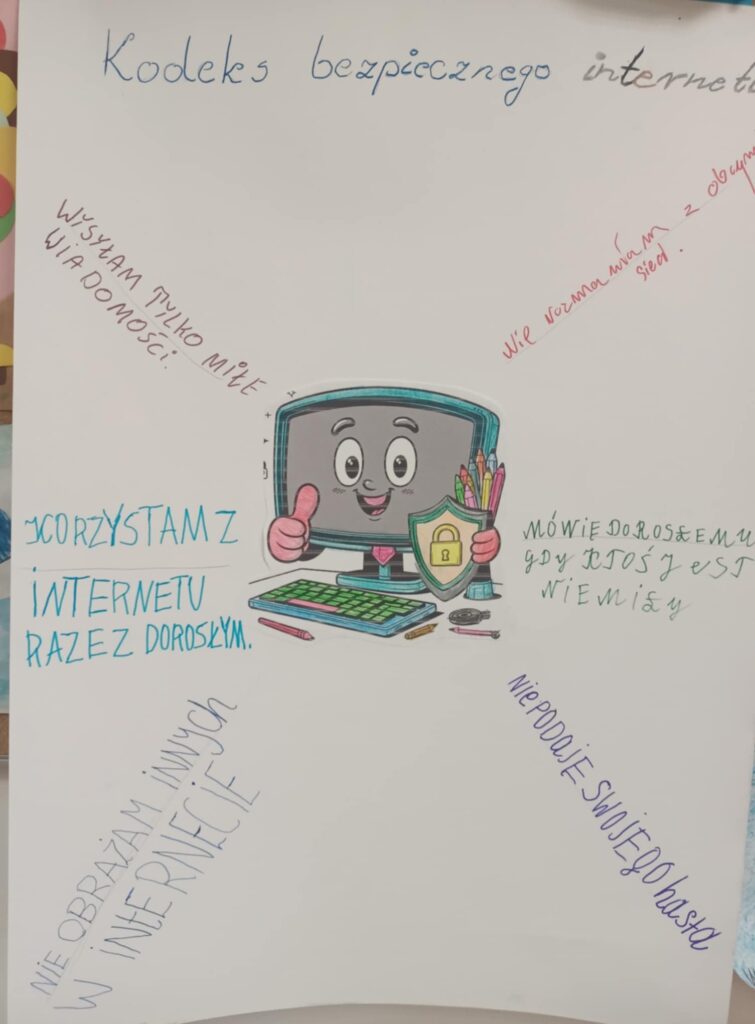 Kodeks bezpiecznego internetu
WYSYŁAM TYLKO MIŁE
WIADOMOŚCI.
Nie rozmawiam z obcym
sied.
KORZYSTAM Z
INTERNETU
RAZEZ DOROSŁYM.
MÓWIĘ DOROSŁEMU
GDY KTOŚ JEST
NIEMIŁY
NIE OBRAŻAM INNYCH
W INTERNECIE
NIE PODAJE SWOJEGO hasła